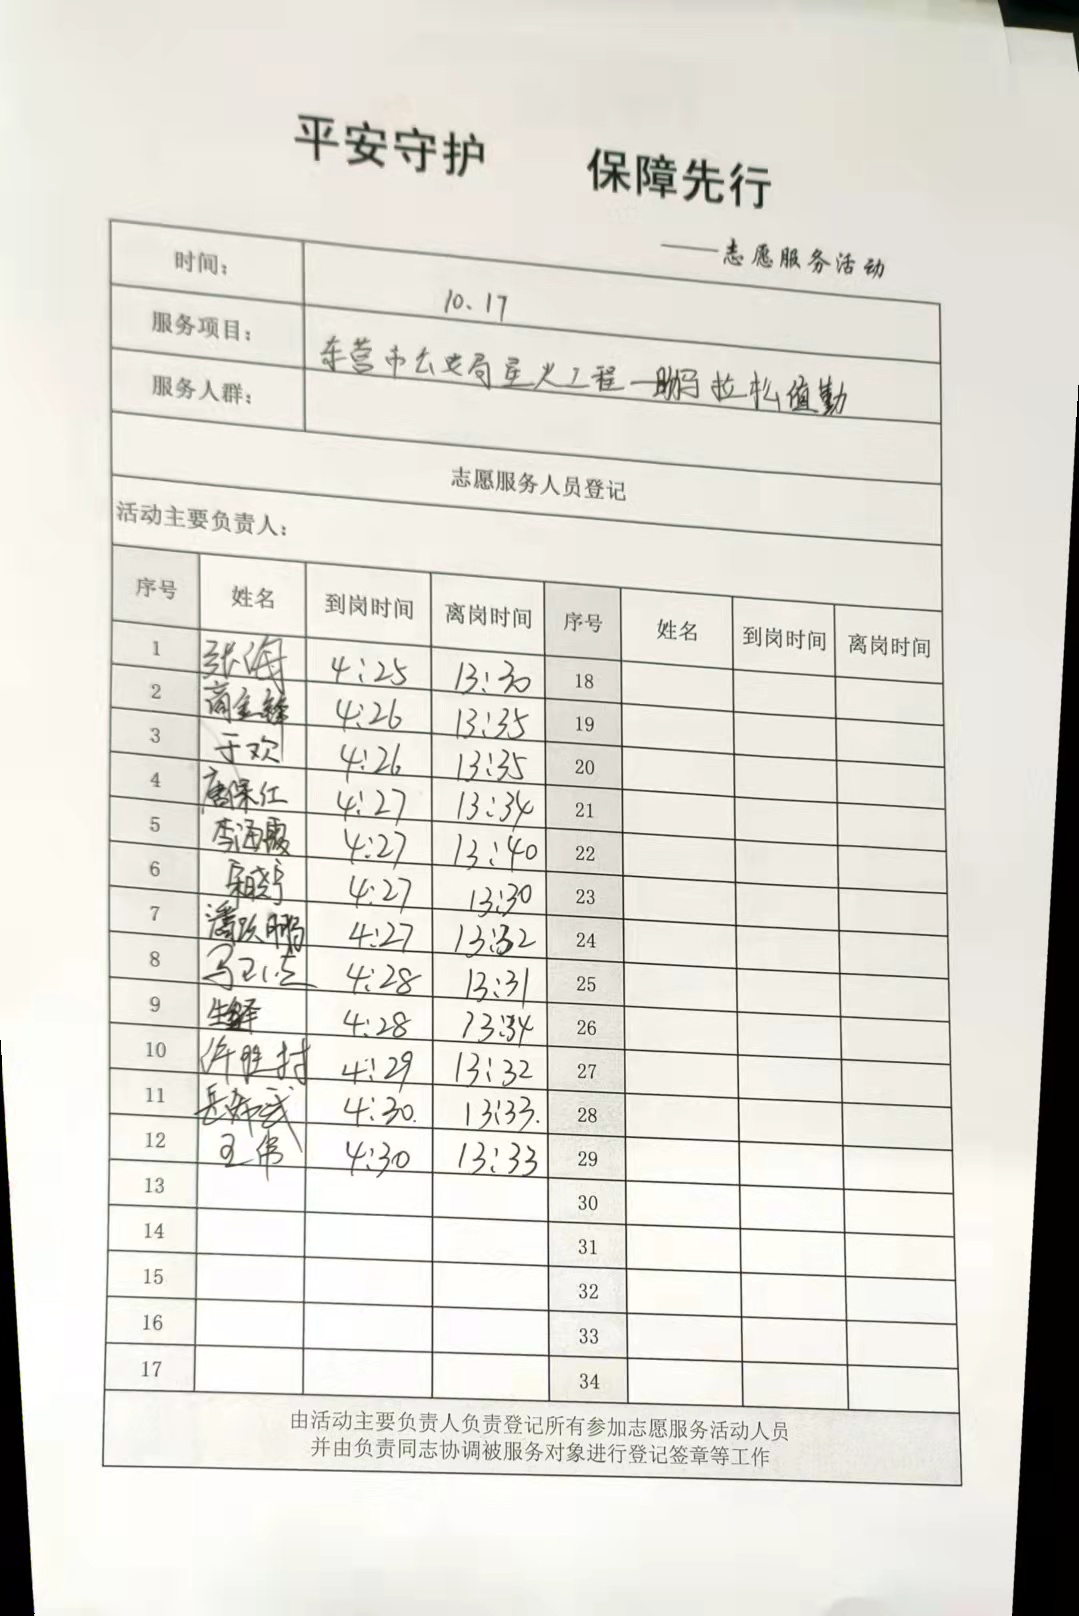 平安守护 保障先行
——志愿服务活动
时间： 10.17
服务项目： 东营市公安局星火工程—马拉松值勤
服务人群：
志愿服务人员登记
活动主要负责人：
序号 姓名 到岗时间 离岗时间 序号 姓名 到岗时间 离岗时间
1 张海 4:25 13:30 18
2 商 4:26 13:35 19
3 于欢 4:26 13:35 20
4 唐保仁 4:27 13:34 21
5 李海霞 4:27 13:40 22
6 4:27 13:30 23
7 潘跃鹏 4:27 13:32 24
8 马 4:28 13:31 25
9 4:28 13:34 26
10 许胜村 4:29 13:32 27
11 4:30. 13:33. 28
12 王伟 4:30 13:33 29
13 30
14 31
15 32
16 33
17 34
由活动主要负责人负责登记所有参加志愿服务活动人员
并由负责同志协调被服务对象进行登记签章等工作